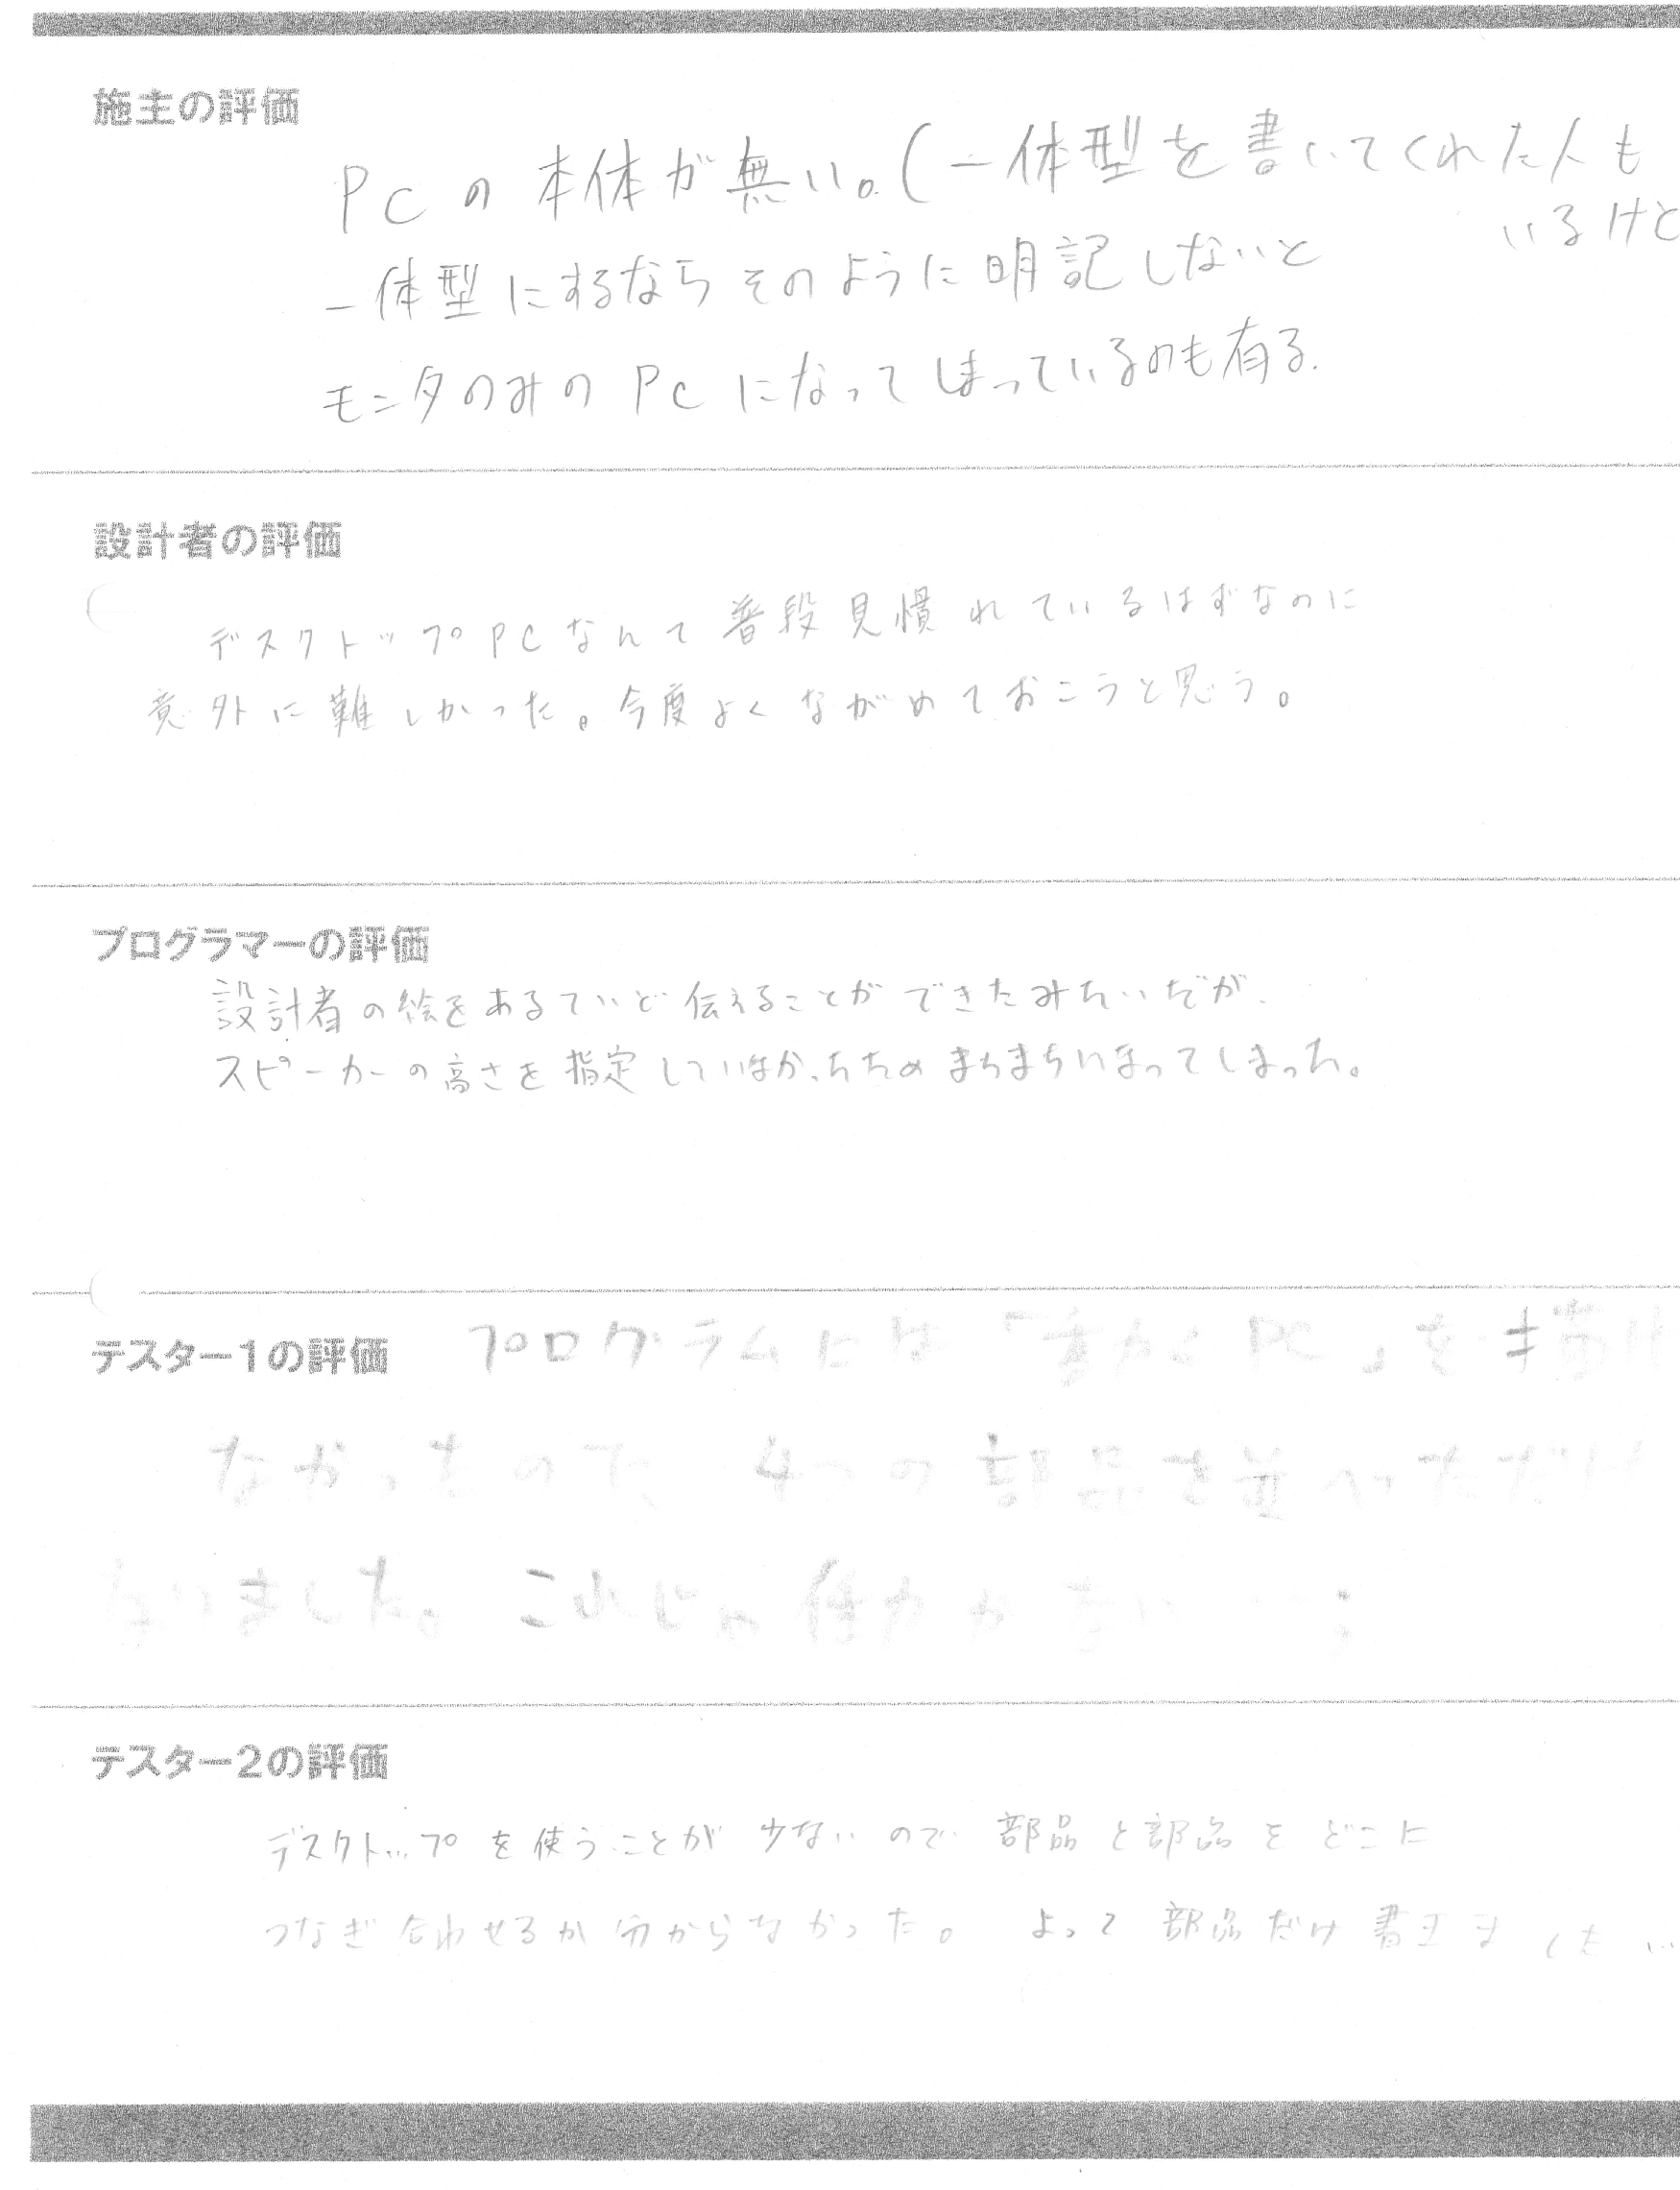 施主の評価
PCの本体が無い。(一体型を書いてくれた人も
いるけど
一体型にするならそのように明記しないと
モニタのみのPCになってしまっているのも有る.
設計者の評価
デスクトップPCなんて普段見慣れているはずなのに
意外に難しかった。今度よくながめておこうと思う。
プログラマーの評価
設計者の絵をあるていど伝えることができたみたいだが、
スピーカーの高さを指定していなかったため まちまちになってしまった。
テスター1の評価
プログラムには「 PC」を描い
なかったので、4つの部品を並べただけ
なりました。これじゃ
テスター2の評価
デスクトップを使うことが少ないので 部品と部品をどこに
つなぎ合わせるか分からなかった。よって部品だけ書きました